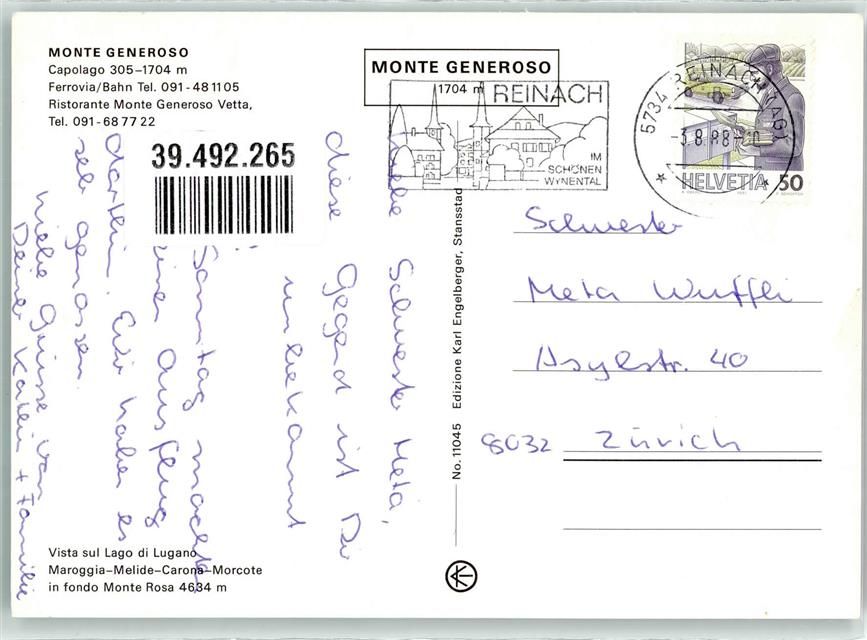 MONTE GENEROSO
Capolago 305–1704 m
Ferrovia/Bahn Tel. 091-48 11 05
Ristorante Monte Generoso Vetta,
Tel. 091-68 77 22
39.492.265
MONTE GENEROSO
1704 m
REINACH
IM
SCHÖNEN
WYNENTAL
5734 REINACH AG
-3.8.88-
HELVETIA 50
Schwester
Meta Wuffli
Asylstr. 40
8032 Zürich
Liebe Schwester Meta,
diese Gegend ist Dir
unbekannt
Samstag machten
einen Ausflug
Wir haben es
sehr genossen.
Liebe Grüsse von
Deiner Katrin + Familie
No. 11045 Edizione Karl Engelberger, Stansstad
Vista sul Lago di Lugano
Maroggia–Melide–Carona–Morcote
in fondo Monte Rosa 4634 m